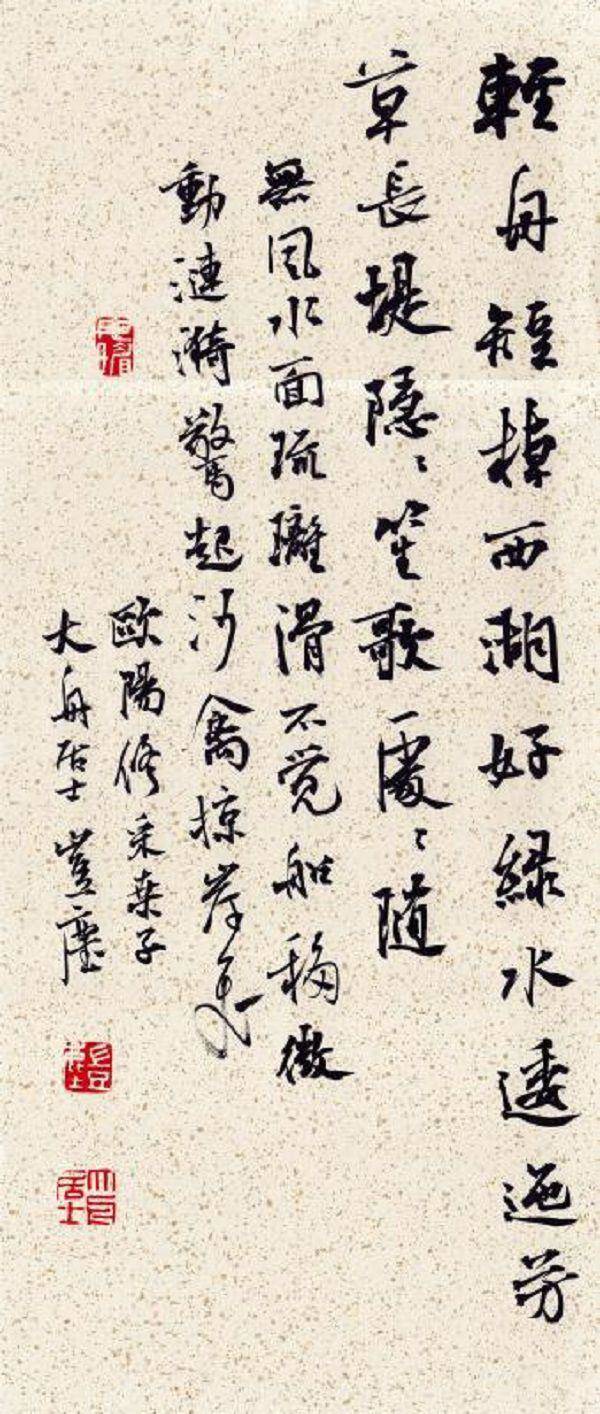 輕舟短棹西湖好綠水逶迤芳
草長堤隱〻笙歌處〻隨
無風水面琉璃滑不覺船移微
動漣漪驚起沙禽掠岸飛
歐陽修采桑子
大舟居士塵
大舟居士